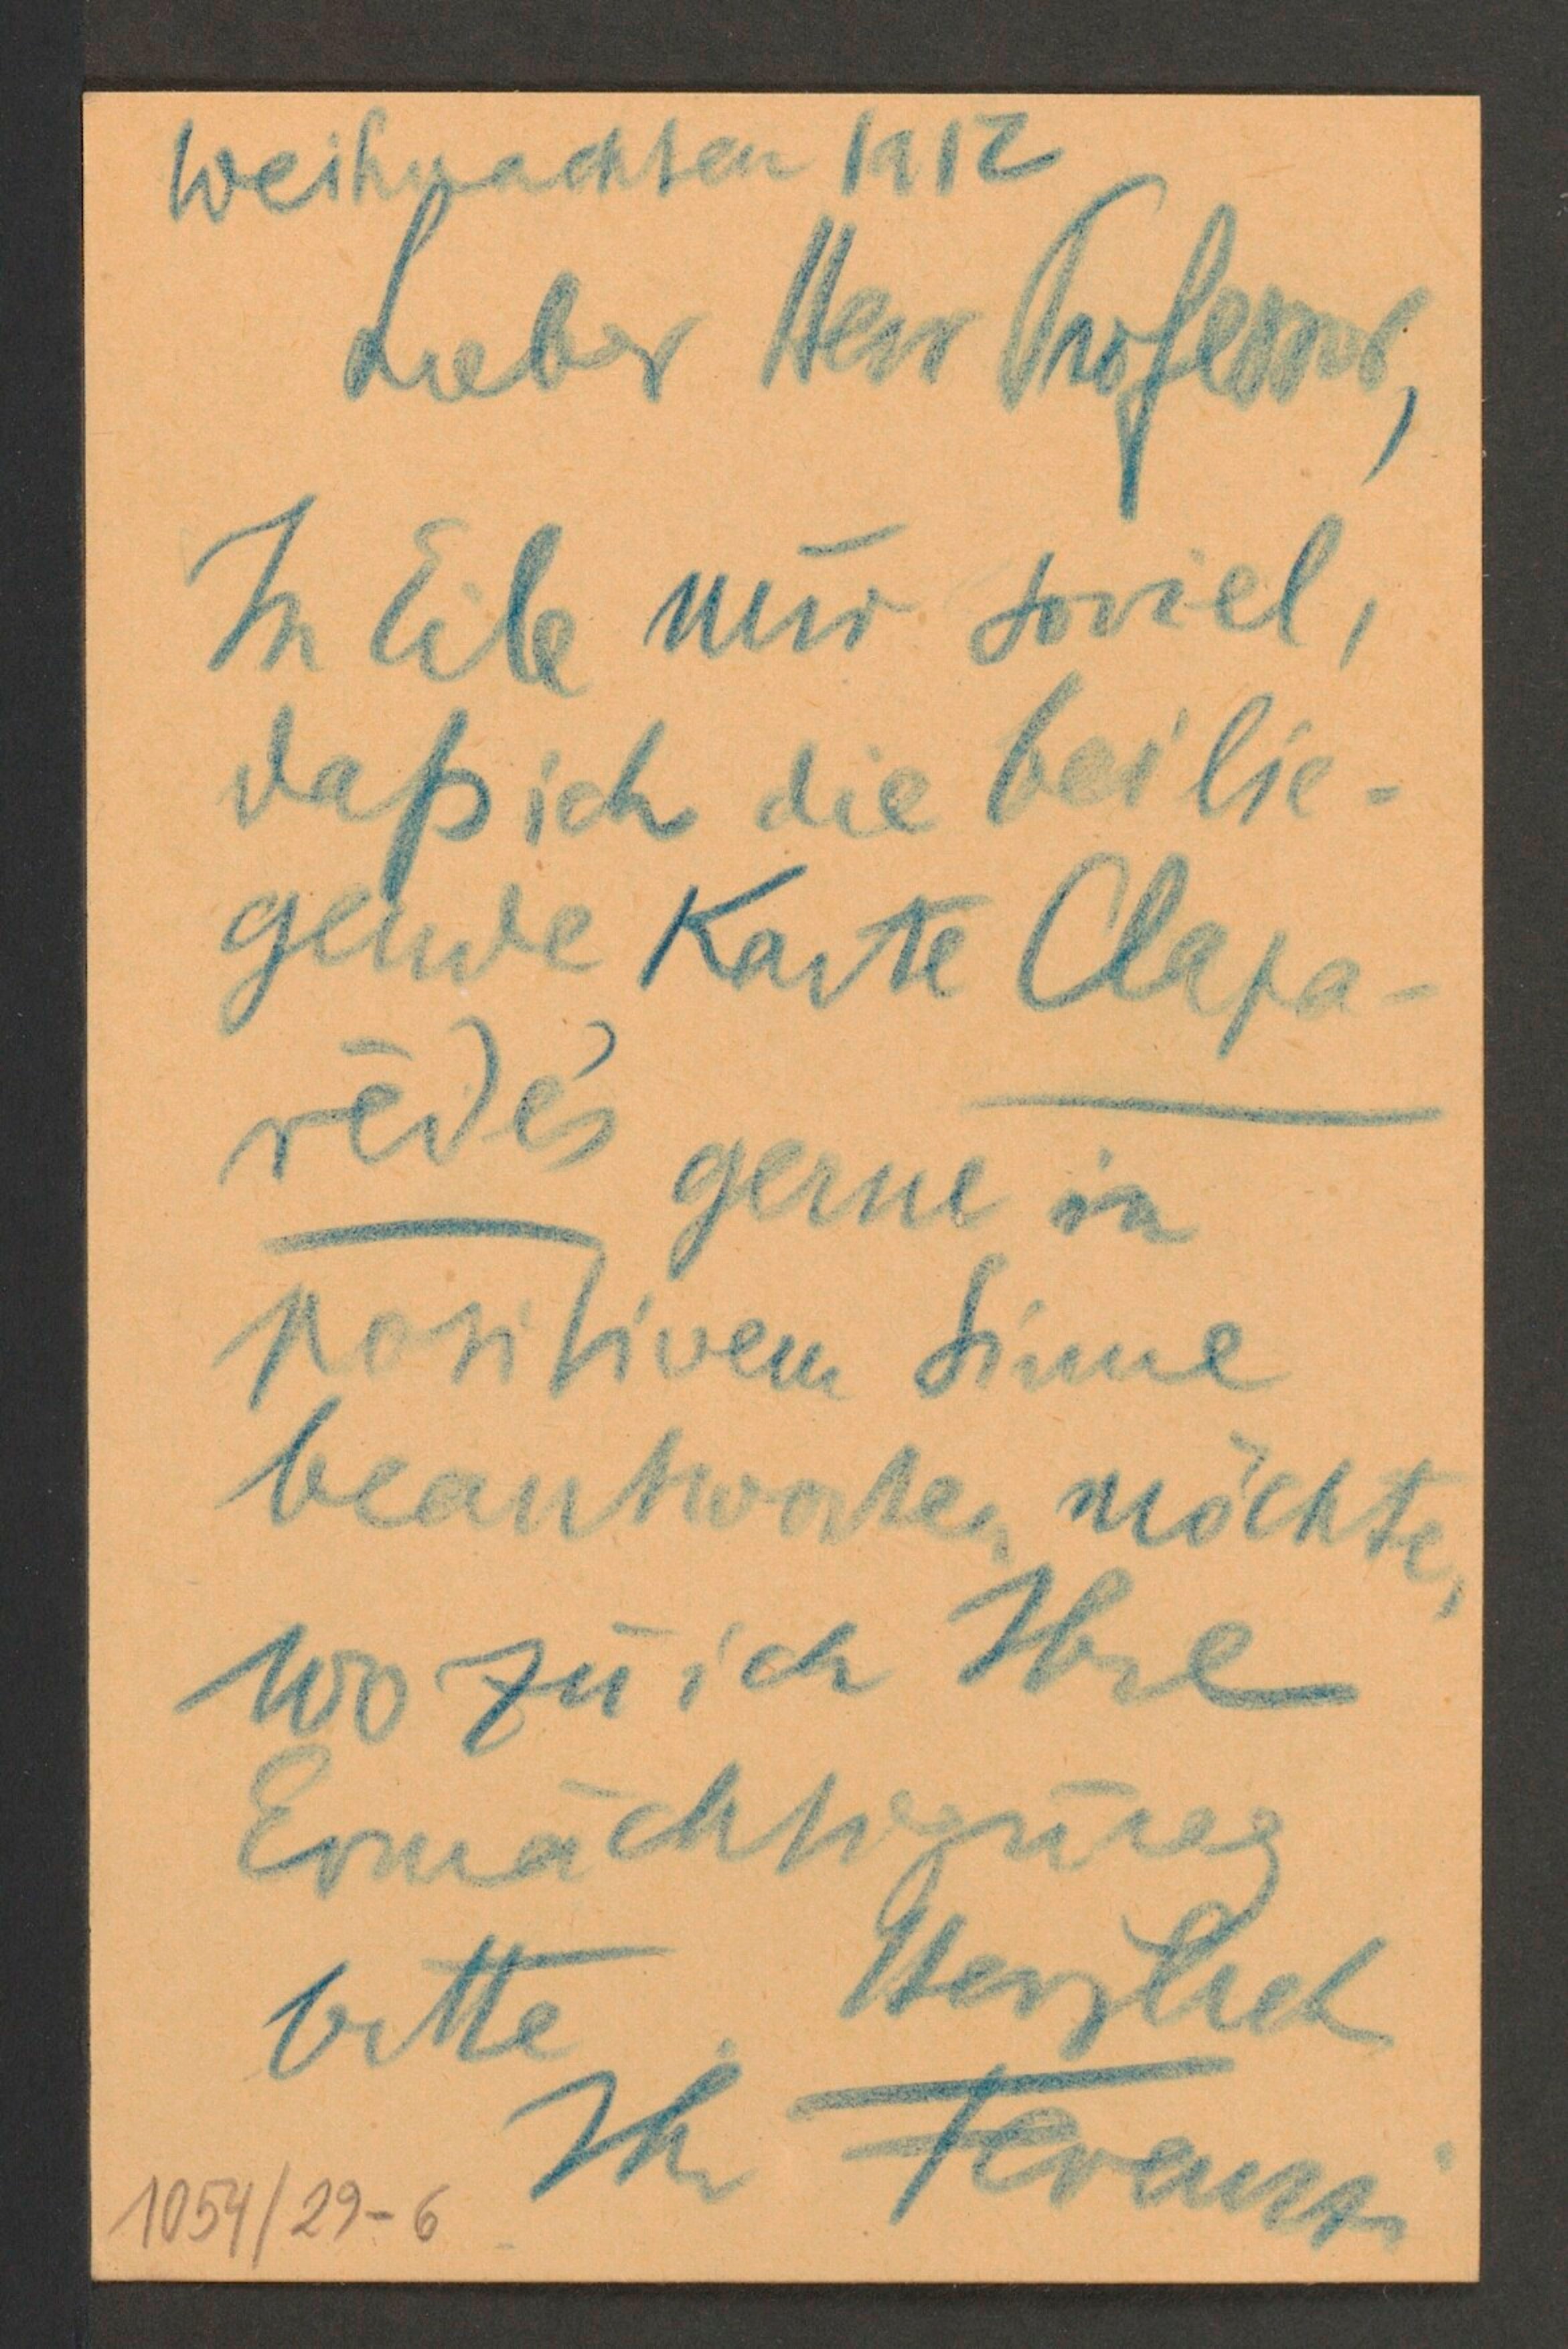 Weihnachten 1912
Lieber Herr Professor,
In Eile nur soviel,
daß ich die beilie-
gende Karte Clapa-
rède's gerne in
positivem Sinne
beantworten möchte,
wozu ich Ihre
Ermächtigung
bitte. Herzlich
Ihr Ferenczi
1054/29-6